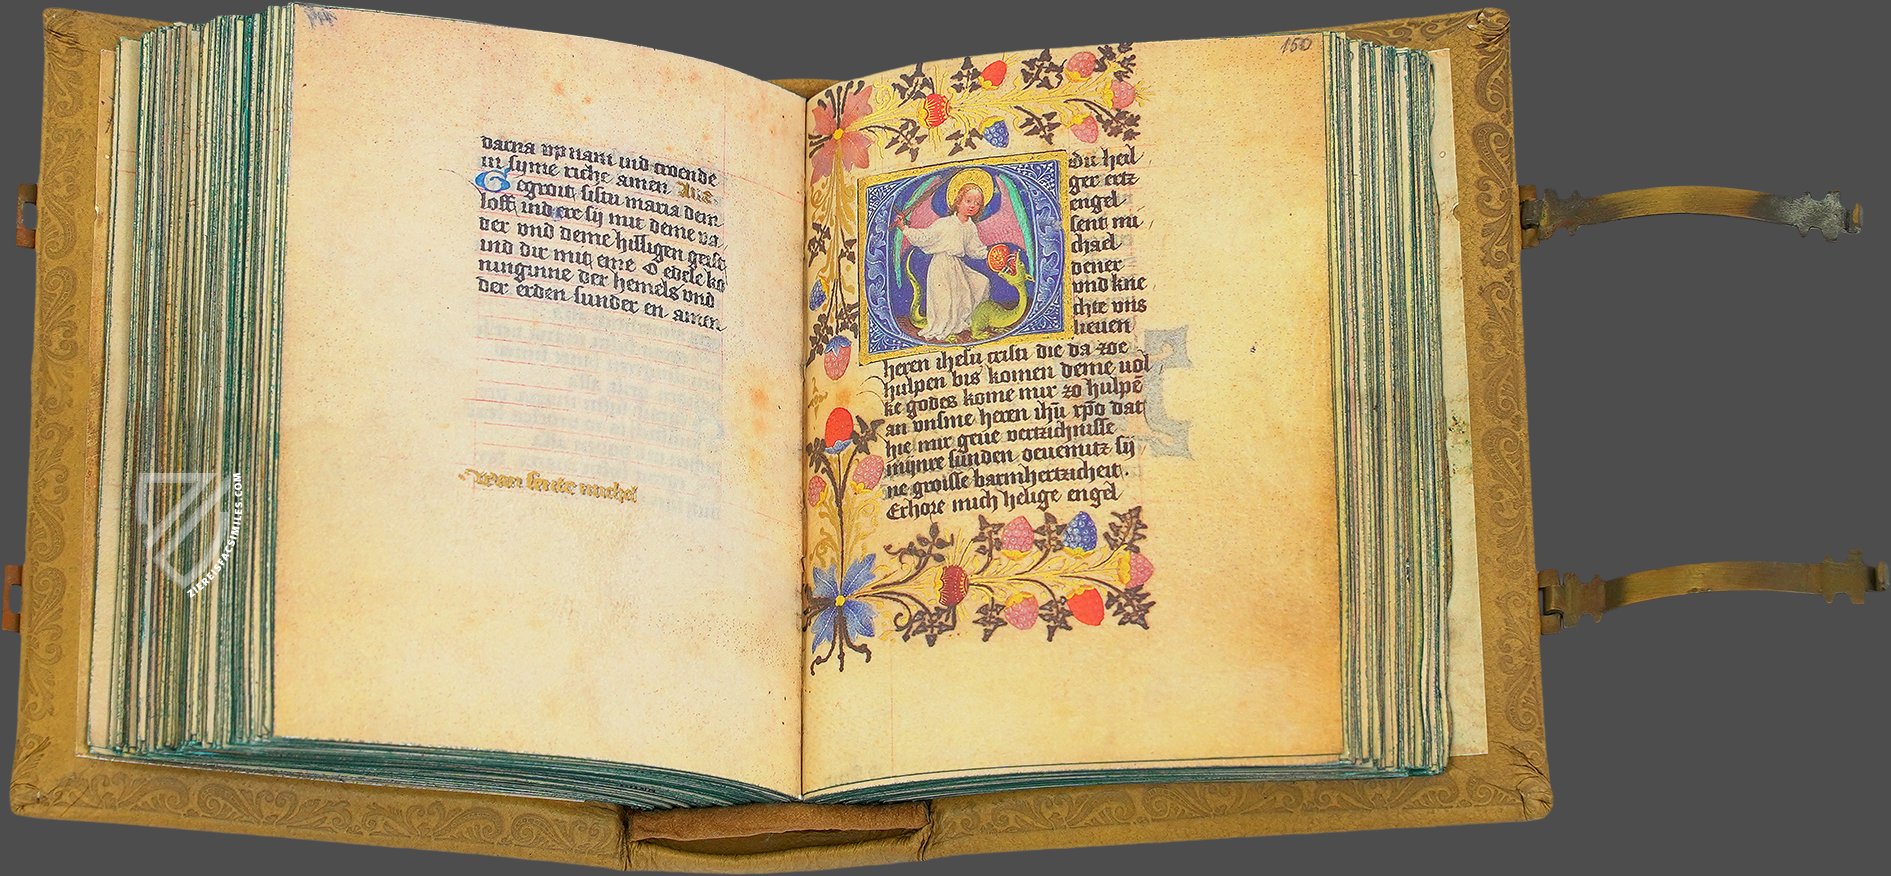 darna vp nam ind troende
in syme riche amen Aue
Gegroit sistu maria dem
loff ind ere sij mit deme va
der vnd deme hilligen geist
ind dir mit eme O edele ko
ninginne der hemels vnd
der erden sunder en amen
van sente michel
150
Du heil
ger ertz
engel
sent mi
chael
dener
vnd kne
chte vns
lieuen
heren ihesu cristi die da zoe
hulpen bis komen deme uol
ke godes kome mir zo hulpē
an vnsme heren ihū xp̄o dat
hie mir geue vertzichnisse
mijnre sunden ouemitz sij
ne groisse barmhertzicheit.
Erhore mich helige engel
ZIEREISFACSIMILES.COM